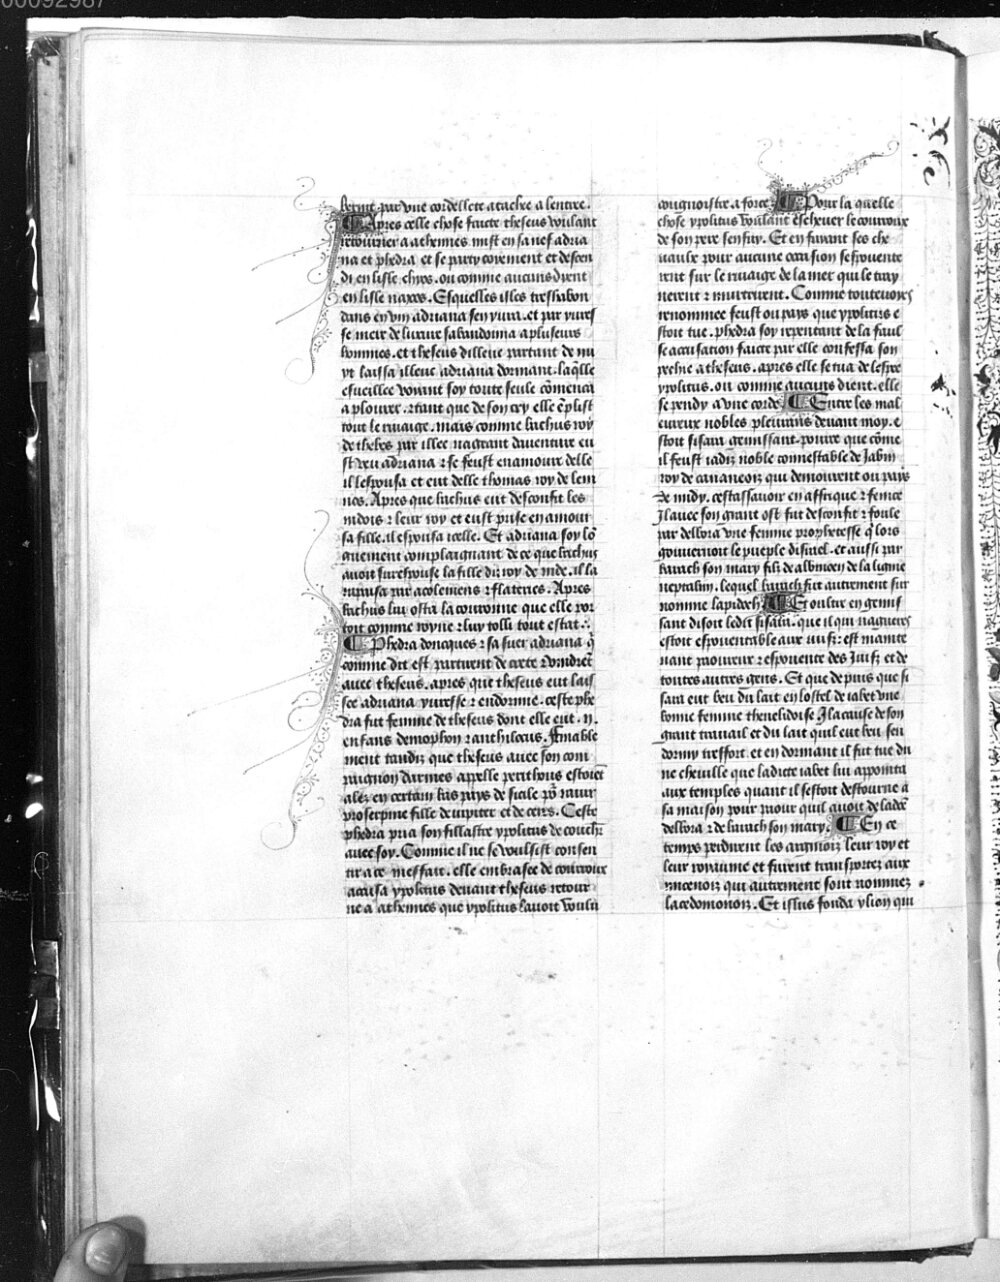 00092987
berint par vne cordellete atachee a lentree.
Apres celle chose faicte theseus voulant
retourner a athennes mist en sa nef adria
na et phedra et se party coyement et descen
di en lisle chyos. ou comme aucuns dient
en lisle naxos. Esquelles isles treshabon
dans en vin adriana sen yura. et par yures
se mere de luxure sabandonna a pluseurs
hommes. et theseus dillecue partant de nu
yt laissa illecue adriana dormant. laq̄lle
esueillee voyant soy toute seule cōmenca
a plourer. ⁊ tant que de son cry elle ēplist
tout le riuaige. mais comme bachus roy
de thebes par illec nageant dauenture eu
st veu adriana ⁊ se feust enamoure delle
il lespousa et eut delle thomas roy de lem
nos. Apres que bachus eut desconfit les
indois ⁊ leur roy et eust prise en amour
sa fille. il espousa icelle. Et adriana soy lō
guement complaignant de ce que bachus
auoit surespouse la fille du roy de inde. il la
rapaisa par acolemens ⁊ flateries. Apres
bachus luy osta la couronne que elle por
toit comme royne ⁊ luy tolli tout estat.
Phedra doncques ⁊ sa suer adriana q̄
comme dit est partirent de crete ⁊ vindrēt
auec theseus. apres que theseus eut lais
see adriana yuresse ⁊ endormie. ceste phe
dra fut femme de theseus dont elle eut .ii.
enfans demophon ⁊ anthilocus. Finable
ment tandiz que theseus auec son com
paignon darmes appelle perithous estoiēt
alez en certain bas pays de sicile pō rauir
proserpine fille de iupiter et de ceres. Ceste
phedra pria son fillastre ypolitus de couchr
auec soy. Comme il ne se voulsist consen
tir a ce meffait. elle embrasee de courroux
acusa ypolitus deuant theseus retour
ne a athennes que ypolitus lauoit voulu
congnoistre a force. Pour la quelle
chose ypolitus voulant escheuer le courroux
de son pere sen fuy. Et en fuyant ses che
uaulx pour aucune occasion sespouente
rent sur le riuaige de la mer qui le tray
nerent ⁊ murtrirent. Comme toutesuoyes
renommee feust ou pays que ypolitus e
stoit tue. phedra soy repentant de la faul
se accusation faicte par elle confessa son
pechie a theseus. apres elle se tua de lespee
ypolitus. ou comme aucuns dient. elle
se pendy a vne corde. Entre les mal
eureux nobles plourans deuant moy. e
stoit sisara gemissant. pource que cōme
il feust iadiz noble connestable de Jabin
roy de cananeois qui demourent ou pays
de midy. cestassauoir en affrique ⁊ fenice
Il auec son grant ost fut desconfit ⁊ foule
par delbora vne femme prophetesse q̄ lors
gouuernoit le pueple disrael. et aussi par
barach son mary filz de albinoen de la ligne
neptalim. lequel barach fut autrement sur
nomme lapidoch. Et oultre en gemis
sant disoit ledit sisara. que il qui nagueres
estoit espouentable aux iuifz: est mainte
nant paoureux ⁊ espouente des Juifz et de
toutes autres gens. Et que depuis que si
sara eut beu du lait en lostel de iabel vne
bonne femme thenelidoise Il a cause de son
grant trauail et du lait quil eut beu sen
dormy tresfort. et en dormant il fut tue du
ne cheuille que ladicte iabel lui appointa
aux temples quant il sestoit destourne a
sa maison pour paour quil auoit de ladcē
delbora ⁊ de barach son mary. En ce
temps perdirent les argiuois leur roy et
leur royaume et furent transportez aux
micenois qui autrement sont nommez
lacedomonois. Et illus fonda ylion qui